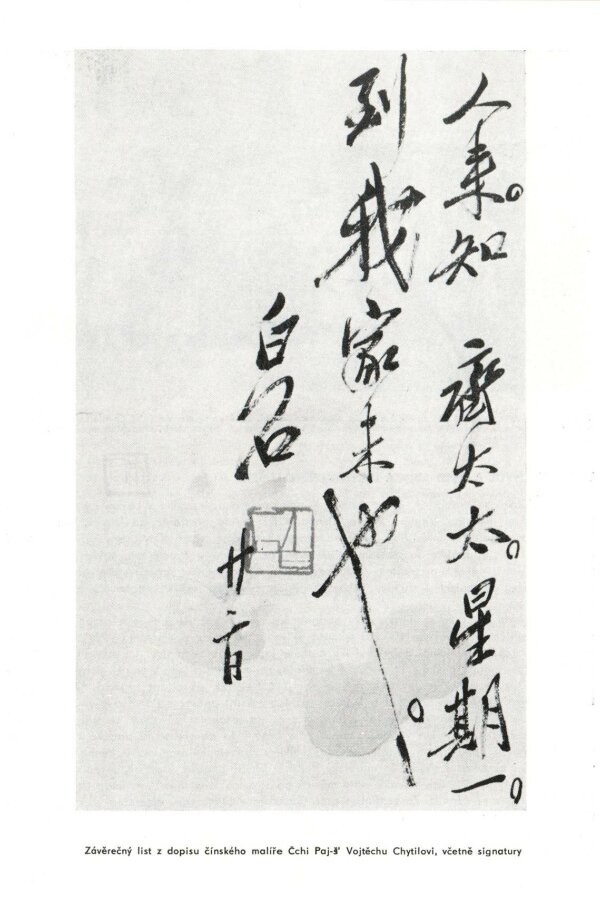 人来。知 齊太太。星期一。
到我家来也。
白石
廿二日
Závěrečný list z dopisu čínského malíře Čchi Paj-š' Vojtěchu Chytilovi, včetně signatury